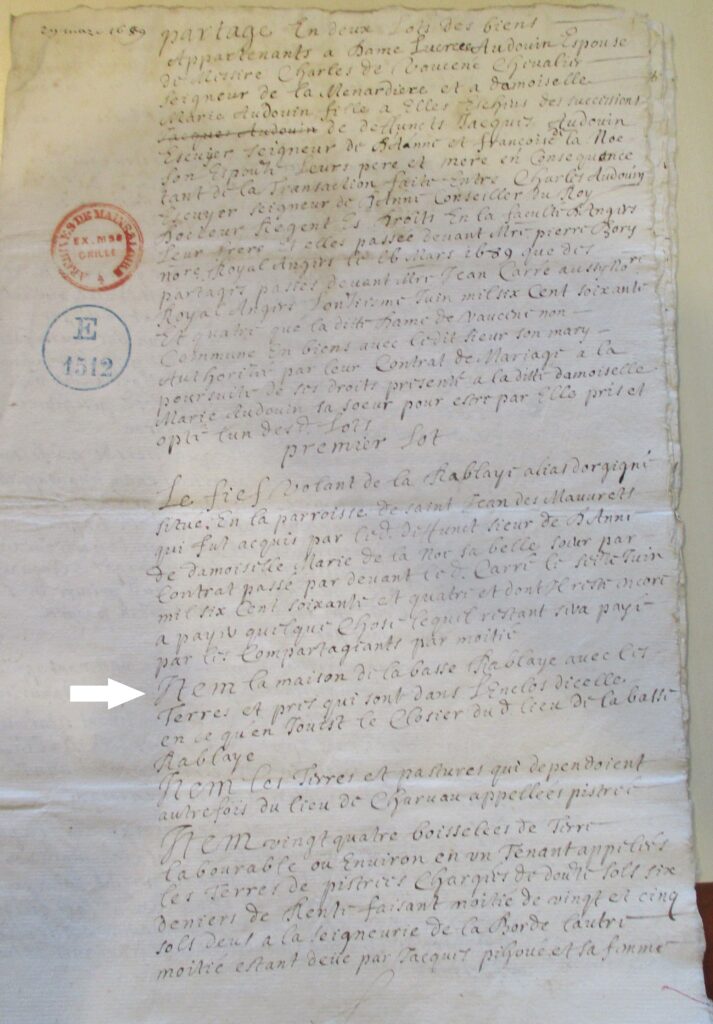 29 mars 1689
partage En deux Lots des biens
Appartenants a Dame Lucrece Audouin Espouse
de Messire Charles de Voucene Chevalier
seigneur de la Menardiere et a damoiselle
Marie Audouin fille a Elles Eschius des successions
Jacques Audouin de deffuncts Jacques Audouin
Escuyer seigneur de Danne et françoise la Noe
son Espouse Leurs pere et mere en Consequence
tant de la Transaction faite Entre Charles Audouin
Escuyer seigneur de Danne Conseiller du Roy
Docteur Regent Es Droits En la faculté d'Angers
Leur frere et elles passée devant Mre pierre Bory
nore Royal Angers le 16 Mars 1689 que des
partages passés devant Mre Jean Carré aussy nore
Royal Angers Juin mil six Cent soixante
Et quatre que la ditte Dame de Vaucene non
Commune En biens avec ledit sieur son mary
Authorisée par leur Contrat de Mariage a la
poursuite de ses droits presente a la ditte damoiselle
Marie Audouin sa soeur pour estre par Elle pris et
opté l'un desd. Lots
premier Lot
Le fief Volant de la Rablaye alias dorgigné
situé En la parroisse de saint Jean des Mauvrets
qui fut acquis par led. deffunct sieur de Danne
de damoiselle Marie de la Noe sa belle soeur par
Contrat passé par devant led. Carré le Juin
mil six Cent soixante et quatre et dont Il reste encore
a payer quelque Chose lequel restant sera payé
par les Compartageants par moitié
Item la maison de la basse Rablaye avec les
Terres et prés qui sont dans l'Enclos dicelle
en ce qu'en Jouist le Closier du d. lieu de la basse
Rablaye
Item les Terres et pastures qui dependoient
autrefois du lieu de Charuau appellées pistrée
Item vingt quatre boisselées de Terre
labourable ou Environ en un Tenant appelées
les Terres de pistrées Chargées de douze sols six
deniers de Rente faisant moitié de vingt et cinq
sols deus a la seigneurie de la Borde l'autre
moitié estant deüe par Jacques pihoué et sa femme
ARCHIVES DE MAINE & LOIRE
EX. MSS
GRILLE
4
E
1512